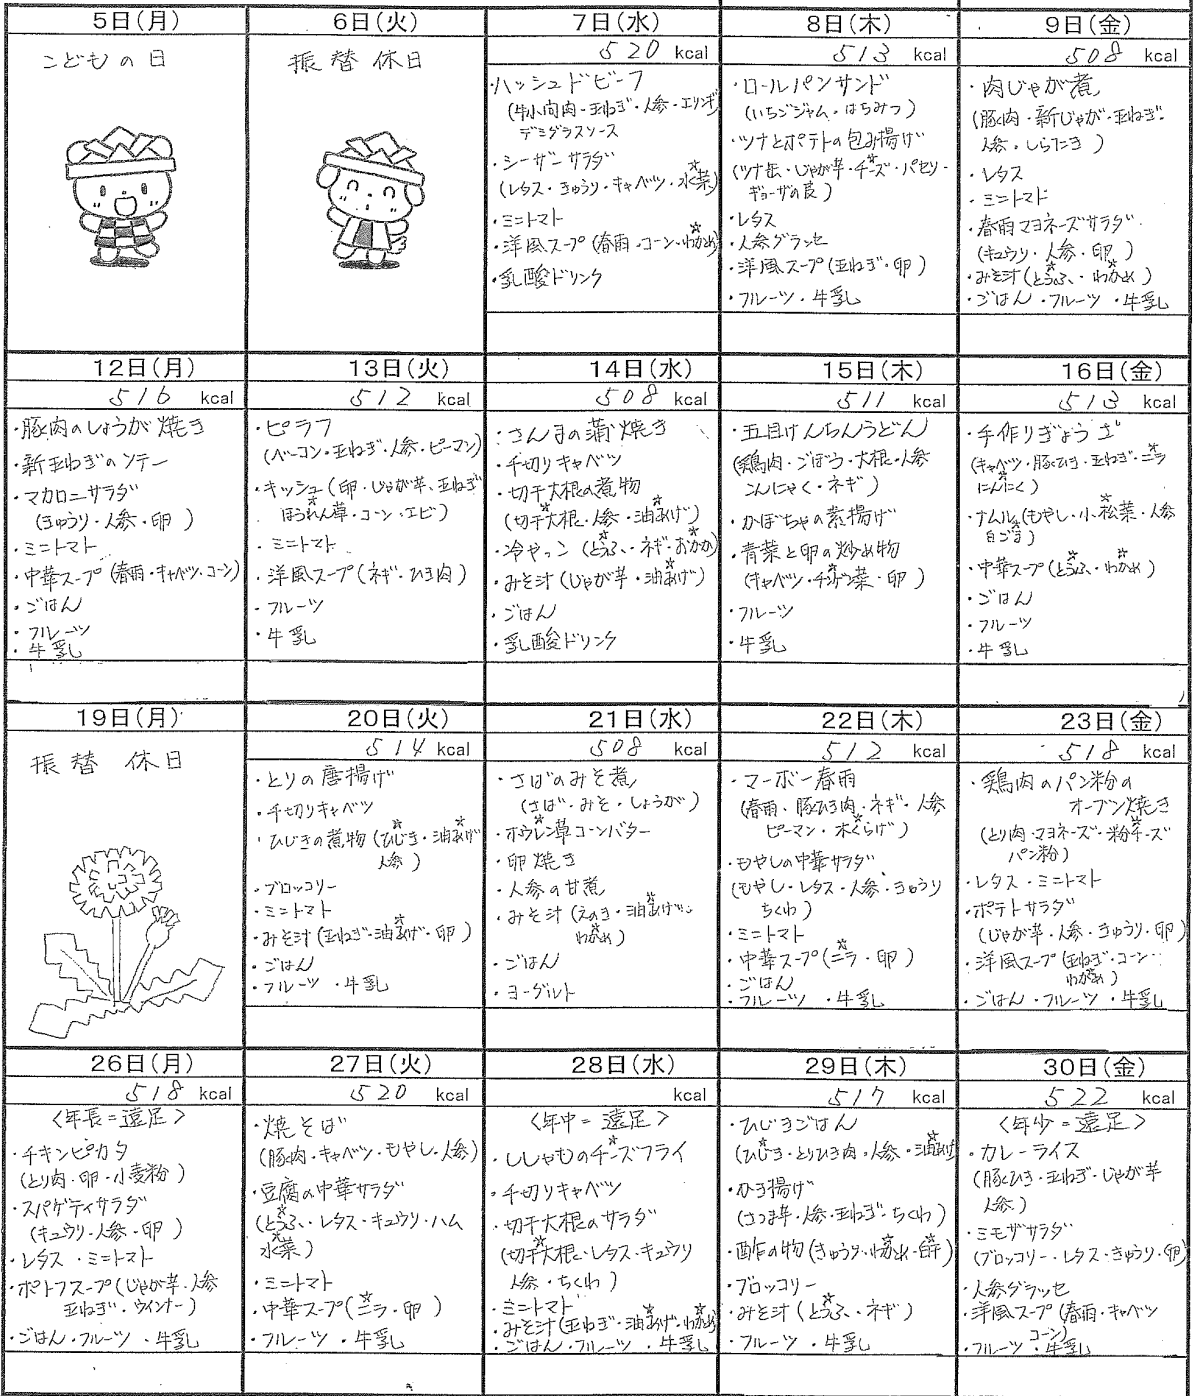 5日(月)
こどもの日
6日(火)
振替休日
7日(水)
520 kcal
・ハッシュドビーフ
(牛小間肉・玉ねぎ・人参・エリンギ
デミグラスソース
・シーザーサラダ
(レタス・きゅうり・キャベツ・水菜)
・ミニトマト
・洋風スープ(春雨・コーン・わかめ)
・乳酸ドリンク
8日(木)
513 kcal
・ロールパンサンド
(いちごジャム・はちみつ)
・ツナとポテトの包み揚げ
(ツナ缶・じゃが芋・チーズ・パセリー
ギョーザの皮)
・レタス
・人参グラッセ
・洋風スープ(玉ねぎ・卵)
・フルーツ・牛乳
9日(金)
508 kcal
・肉じゃが煮
(豚肉・新じゃが・玉ねぎ・
人参・しらたき)
・レタス
・ミニトマト
・春雨マヨネーズサラダ
(キュウリ・人参・卵)
・みそ汁(とうふ・わかめ)
・ごはん・フルーツ・牛乳
12日(月)
516 kcal
・豚肉のしょうが焼き
・新玉ねぎのソテー
・マカロニサラダ
(きゅうり・人参・卵)
・ミニトマト
・中華スープ(春雨・キャベツ・コーン)
・ごはん
・フルーツ
・牛乳
13日(火)
512 kcal
・ピラフ
(ベーコン・玉ねぎ・人参・ピーマン)
・キッシュ(卵・じゃが芋、玉ねぎ
ほうれん草・コーン・エビ)
・ミニトマト
・洋風スープ(ネギ・ひき肉)
・フルーツ
・牛乳
14日(水)
508 kcal
・さんまの蒲焼き
・千切りキャベツ
・切干大根の煮物
(切干大根・人参・油あげ)
・冷やっこ(とうふ・ネギ・おかか)
・みそ汁(じゃが芋・油あげ)
・ごはん
・乳酸ドリンク
15日(木)
511 kcal
・五目けんちんうどん
(鶏肉・ごぼう・大根・人参
こんにゃく・ネギ)
・かぼちゃの素揚げ
・青菜と卵の炒め物
(キャベツ・チンゲン菜・卵)
・フルーツ
・牛乳
16日(金)
513 kcal
・手作りぎょうざ
(キャベツ・豚ひき・玉ねぎ・ニラ
にんにく)
・ナムル(もやし・小松菜・人参
白ごま)
・中華スープ(とうふ・わかめ)
・ごはん
・フルーツ
・牛乳
19日(月)
振替休日
20日(火)
514 kcal
・とりの唐揚げ
・千切りキャベツ
・ひじきの煮物(ひじき・油あげ
人参)
・ブロッコリー
・ミニトマト
・みそ汁(玉ねぎ・油あげ・卵)
・ごはん
・フルーツ・牛乳
21日(水)
508 kcal
・さばのみそ煮
(さば・みそ・しょうが)
・ホウレン草コーンバター
・卵焼き
・人参の甘煮
・みそ汁(えのき・油あげ・
わかめ)
・ごはん
・ヨーグルト
22日(木)
512 kcal
・マーボー春雨
(春雨、豚ひき肉・ネギ・人参
ピーマン・木くらげ)
・もやしの中華サラダ
(もやし・レタス・人参・きゅうり
ちくわ)
・ミニトマト
・中華スープ(ニラ・卵)
・ごはん
・フルーツ・牛乳
23日(金)
518 kcal
・鶏肉のパン粉の
オーブン焼き
(とり肉・マヨネーズ・粉チーズ
パン粉)
・レタス・ミニトマト
・ポテトサラダ
(じゃが芋・人参・きゅうり・卵)
・洋風スープ(玉ねぎ・コーン・
わかめ)
・ごはん・フルーツ・牛乳
26日(月)
518 kcal
〈年長=遠足〉
・チキンピカタ
(とり肉・卵・小麦粉)
・スパゲティサラダ
(キュウリ・人参・卵)
・レタス・ミニトマト
・ポトフスープ(じゃが芋・人参
玉ねぎ・ウインナー)
・ごはん・フルーツ・牛乳
27日(火)
520 kcal
・焼そば
(豚肉・キャベツ・もやし・人参)
・豆腐の中華サラダ
(とうふ・レタス・キュウリ・ハム
水菜)
・ミニトマト
・中華スープ(ニラ・卵)
・フルーツ・牛乳
28日(水)
kcal
〈年中=遠足〉
・ししゃものチーズフライ
・千切りキャベツ
・切干大根のサラダ
(切干大根・レタス・キュウリ
人参・ちくわ)
・ミニトマト
・みそ汁(玉ねぎ・油あげ・わかめ)
・ごはん・フルーツ・牛乳
29日(木)
517 kcal
・ひじきごはん
(ひじき・とりひき肉・人参・油あげ)
・かき揚げ
(さつま芋・人参・玉ねぎ・ちくわ)
・酢の物(きゅうり・わかめ・白干)
・ブロッコリー
・みそ汁(とうふ・ネギ)
・フルーツ・牛乳
30日(金)
522 kcal
〈年少=遠足〉
・カレーライス
(豚ひき・玉ねぎ・じゃが芋
人参)
・ミモザサラダ
(ブロッコリー・レタス・きゅうり・卵)
・人参グラッセ
・洋風スープ(春雨・キャベツ
コーン)
・フルーツ・牛乳